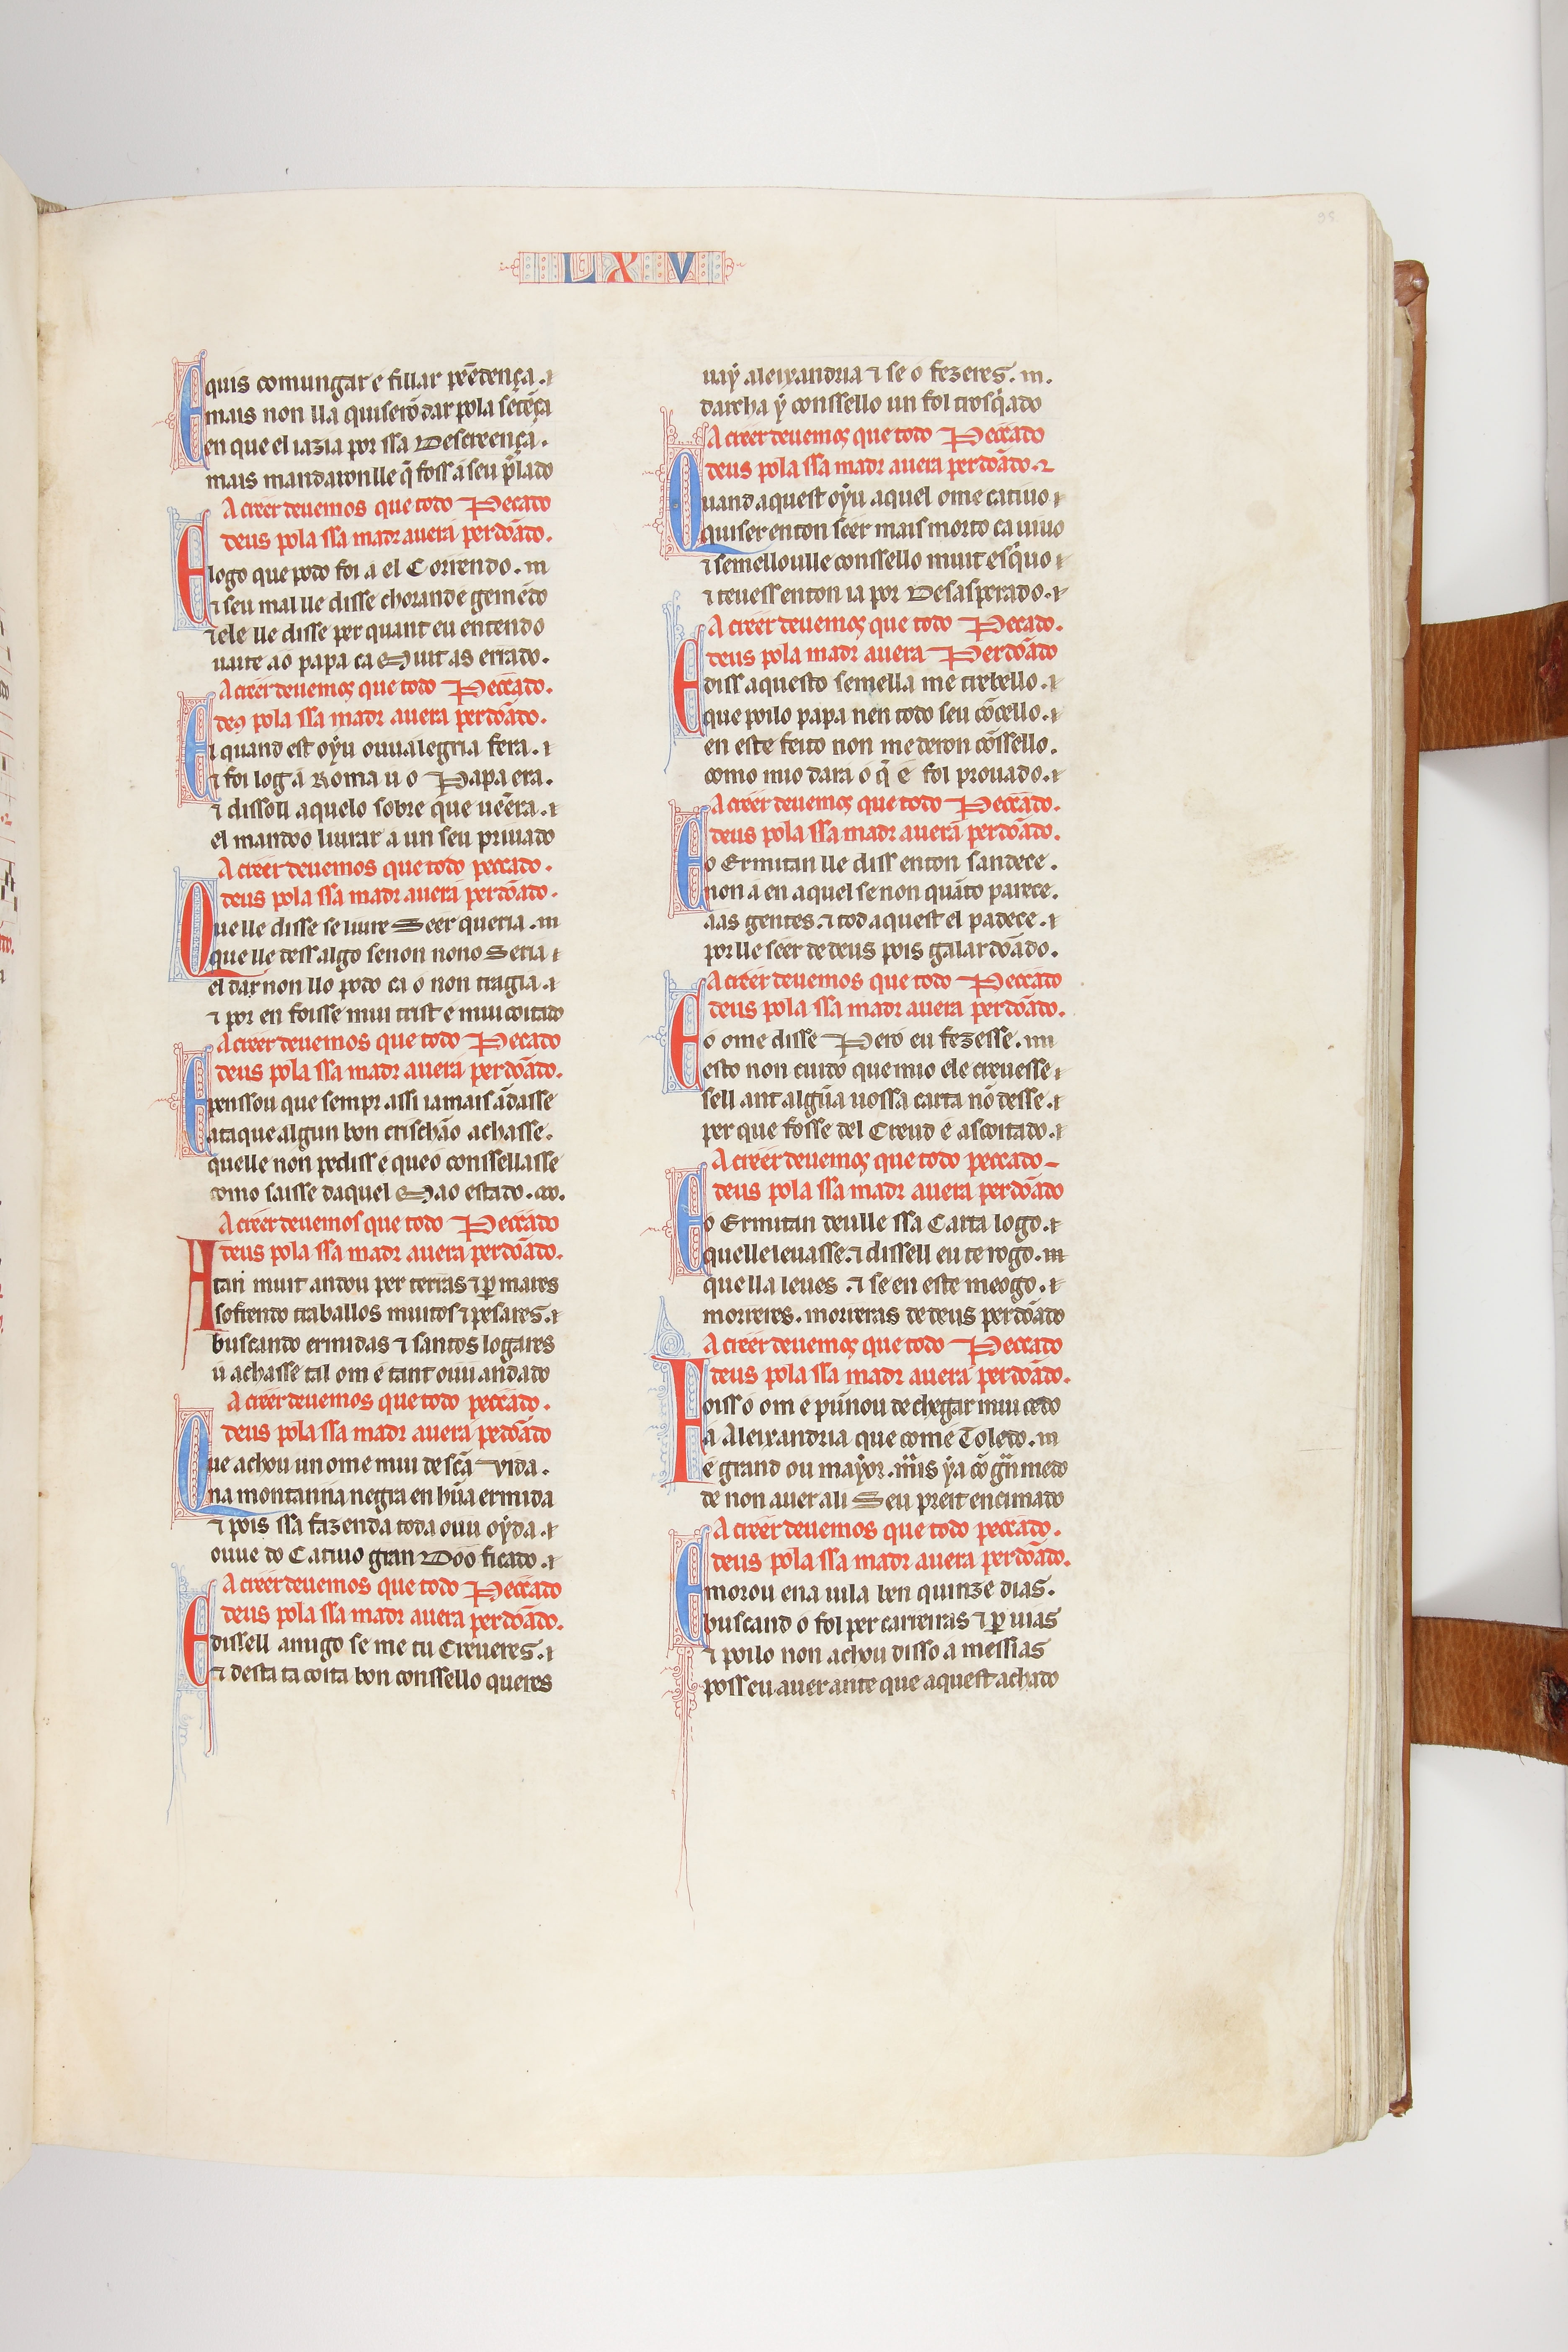 LXV
95
E quis comungar e fillar pẽedença.
mais non lla quiserõ dar pola setẽça
en que el iazia por ssa Descreença.
mais mandaronlle q̃ foss a seu p̃lado
A creer deuemos que todo Pecado
deus pola ssa madr auera perdõado.
E logo que podo foi a el Correndo. m
⁊ seu mal lle disse chorand e gemẽdo
⁊ ele lle disse per quant eu entendo
uaite ao papa ca Muit as errado.
A creer deuemos que todo Peccado.
deꝯ pola ssa madr auera perdõado.
E l quand est oyu ouu alegria fera.
⁊ foi log a Roma u o Papa era.
⁊ dissoll aquelo sobre que uẽera.
el mandoo liurar a un seu priuado
A creer deuemos que todo peccado.
deus pola ssa madr auera perdõado.
Que lle disse se liure Seer queria. m
que lle dess algo senon nono Seria
el dar non llo podo ca o non tragia.
⁊ por en foisse mui trist e mui coitado
A creer deuemos que todo Pecado
deus pola ssa madr auera perdõado.
E penssou que sempr assi iamais ãdasse
ata que algun bon crischão achasse.
quelle non pediss e queo conssellasse
como saisse daquel Mao estado.
A creer deuemos que todo Peccado
deus pola ssa madr auera perdõado.
Atan muit andou per terras ⁊ ꝑ mares
sofrendo traballos muitos ⁊ pesares.
buscando ermidas ⁊ santos logares
u achasse tal om e tant ouu andado
A creer deuemos que todo peccado.
deus pola ssa madr auera perdõado
Que achou un ome mui de scã Vida.
na montanna negra en hũa ermida
⁊ pois ssa fazenda toda ouu oyda.
ouue do Catiuo gran Doo ficado.
A creer deuemos que todo Peccado
deus pola ssa madr auera perdõado.
E dissell amigo se me tu Creueres.
⁊ desta ta coita bon conssello queres
uay aleixandria ⁊ se o fezeres. m.
darcha y conssello un fol trosq̃ado
A creer deuemos que todo Peccado
deus pola ssa madr auera perdõado.
Quand aquest oyu aquel ome catiuo
quiser enton seer mais morto ca uiuo
⁊ semelloulle conssello muit esq̃uo
⁊ teuess enton ia por Desasperado.
A creer deuemos que todo Peccado.
deus pola ssa madr auera Perdõado
E diss aquesto semella me trebello.
que poilo papa nen todo seu cõcello.
en este feito non me deron cõssello.
como mio dara o q̃ e fol prouado.
A creer deuemos que todo Peccado.
deus pola ssa madr auera perdõado.
E o Ermitan lle diss enton sandece.
non a en aquel se non quãto parece.
aas gentes. ⁊ tod aquest el padece.
por lle seer de deus pois galardõado.
A creer deuemos que todo Peccado
deus pola ssa madr auera perdõado.
E o ome disse Pero eu fezesse. m
esto non cuido que mio ele creuesse
sell ant algũa uossa carta nõ desse.
per que fosse del Creud e ascoitado.
A creer deuemos que todo peccado
deus pola ssa madr auera perdõado
E o Ermitan deulle ssa Carta logo.
quelle leuasse. ⁊ dissell eu te rogo. m
que lla leues. ⁊ se en este meogo.
morreres. morreras de deus perdõado
A creer deuemos que todo Peccado
deus pola ssa madr auera perdõado.
Foiss o om e punou de chegar mui cedo
a Aleixandria que come Toledo. m
e grand ou mayor. mais ya cõ grã medo
de non auer ali Seu preit encimado
A creer deuemos que todo peccado.
deus pola ssa madr auera perdõado.
E morou ena uila ben quinze dias.
buscand o fol per carreiras ⁊ ꝑ uias
⁊ poilo non achou disso a messias
poss eu auer ante que aquest achado